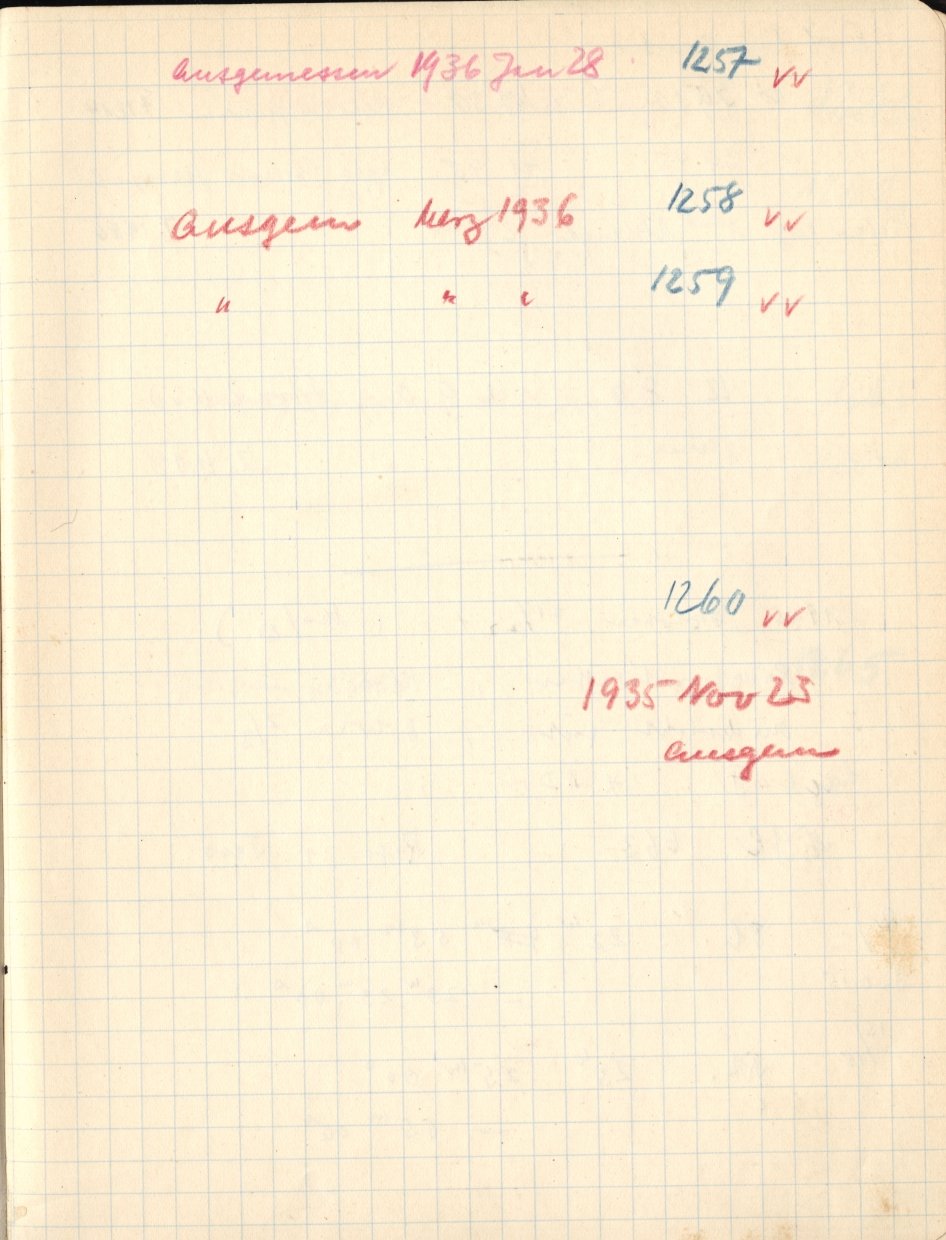 Ausgemessen 1936 Jan 28 1257 VV
Ausgem Merz 1936 1258 VV
" " " 1259 VV
1260 VV
1935 Nov 25
Ausgem